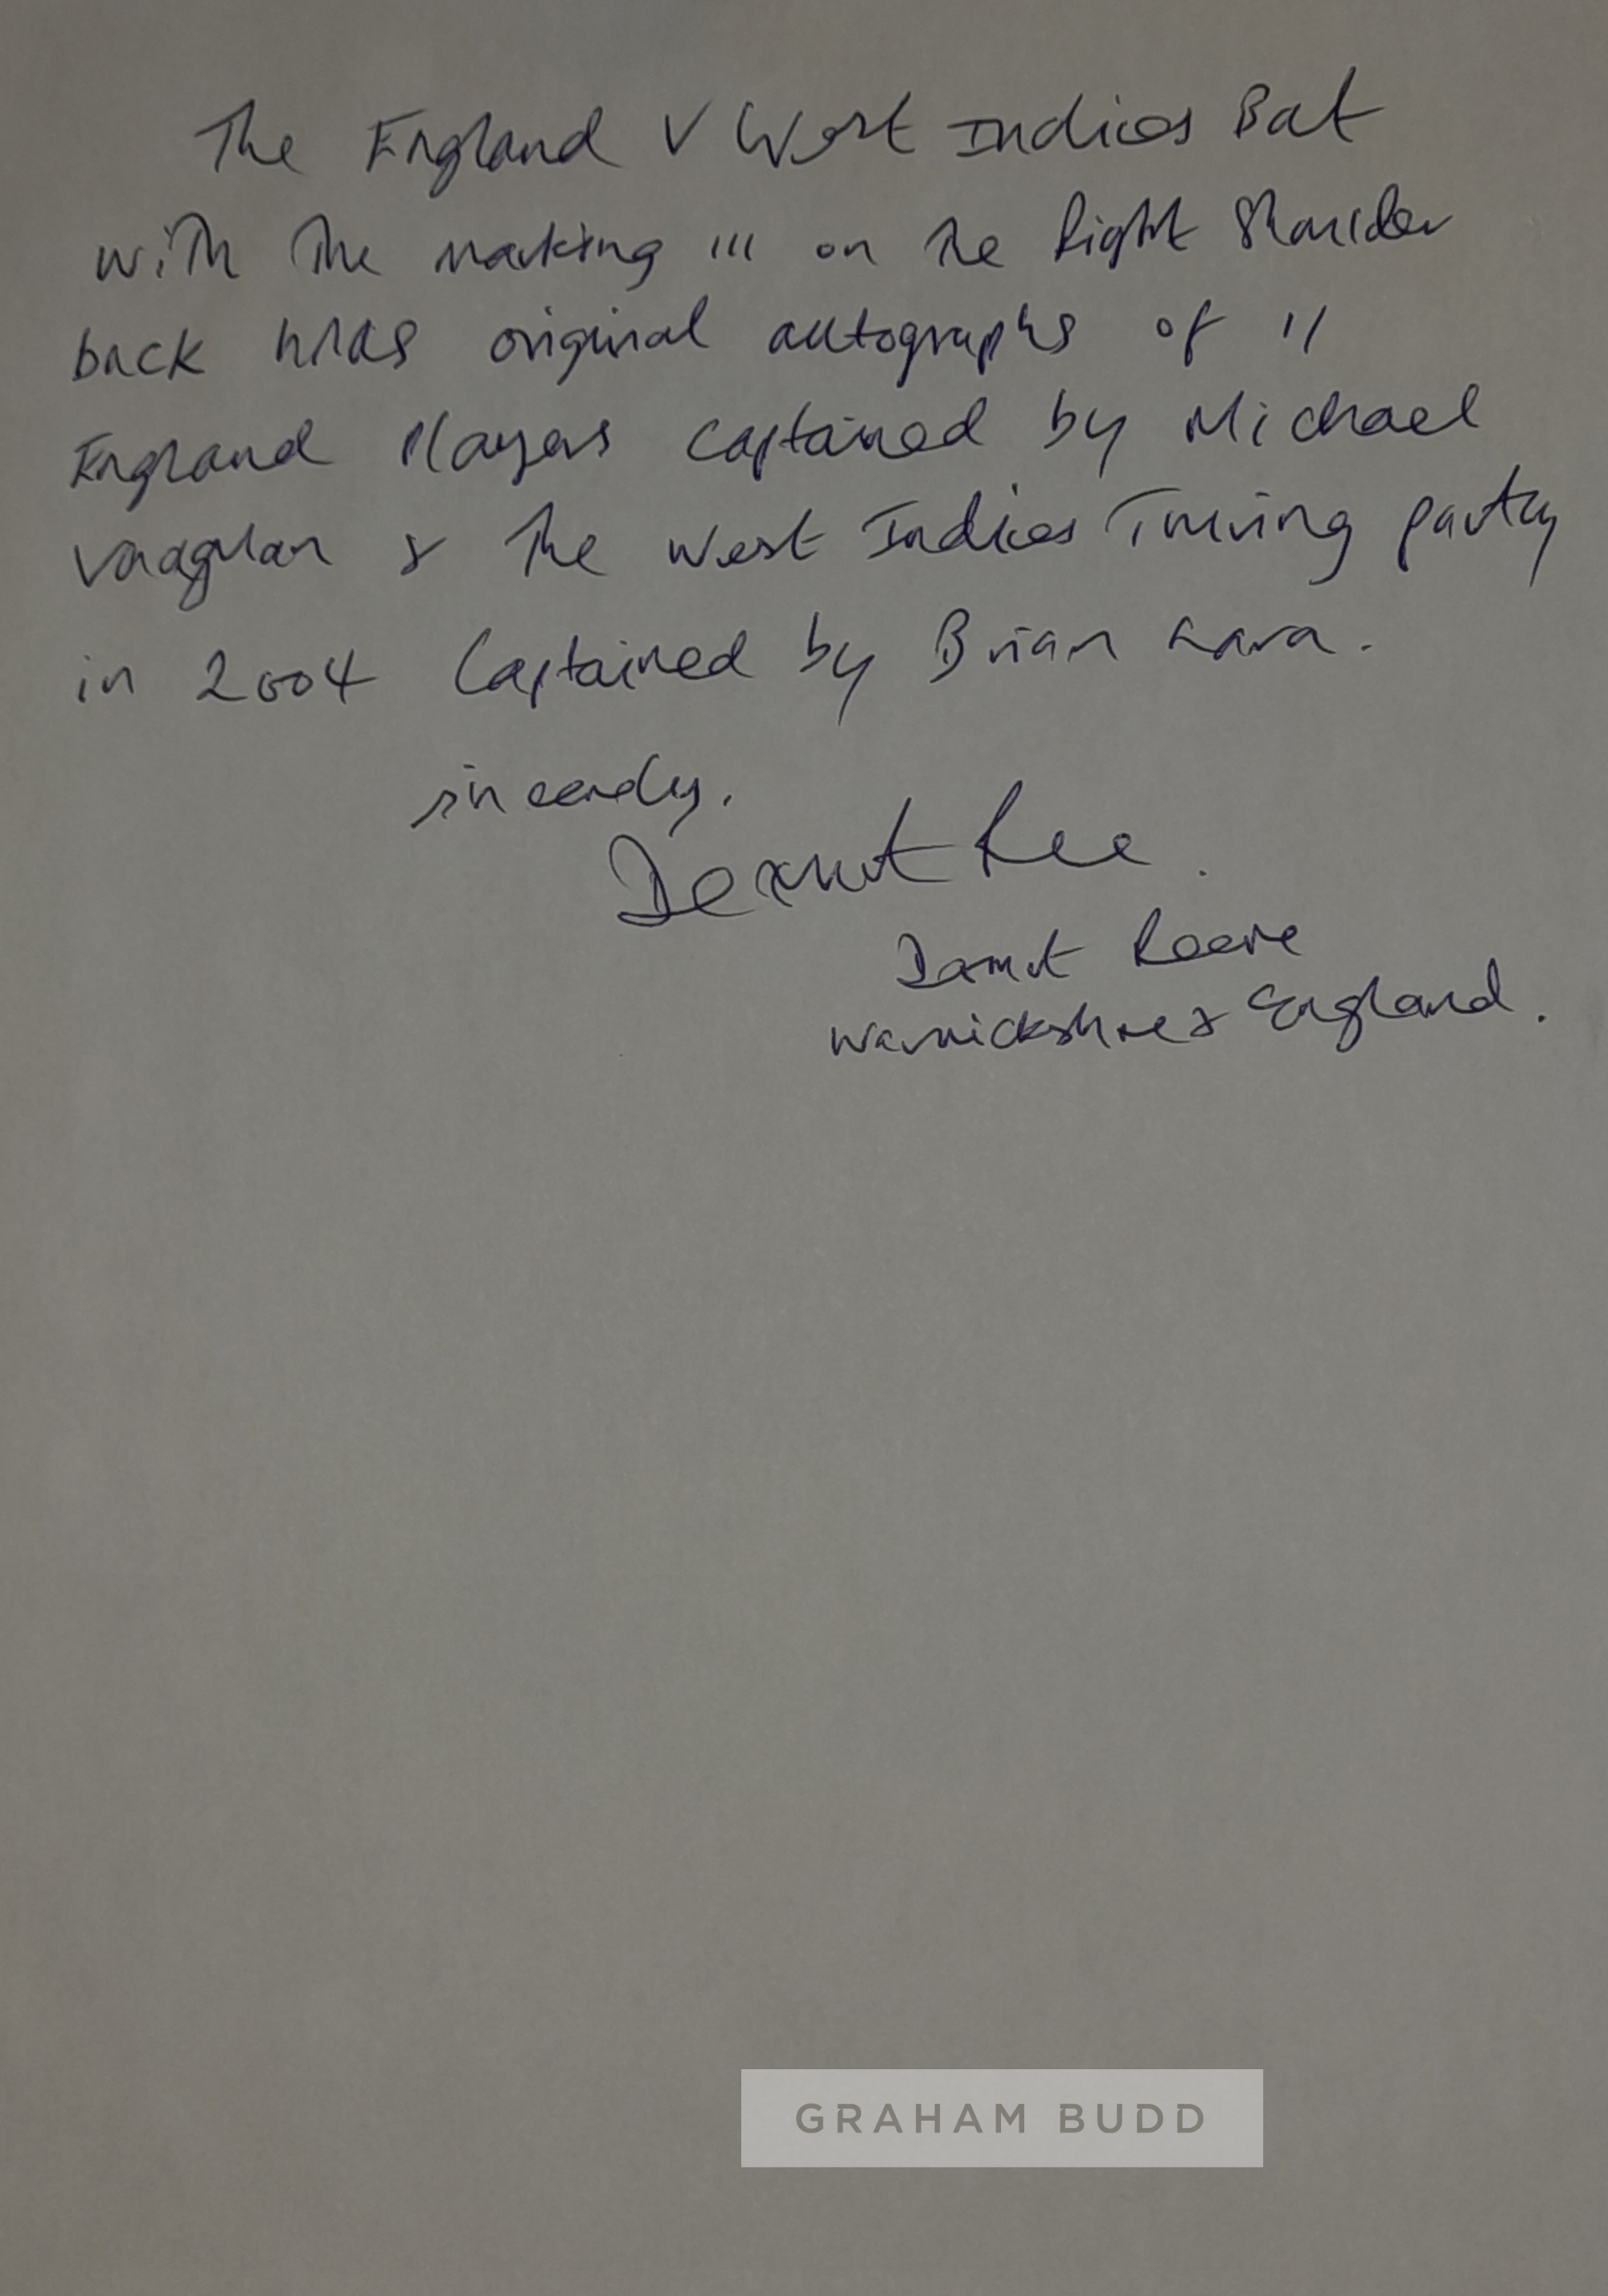 The England V West Indies Bat
with the marking ''' on the Right Shoulder
back has original autographs of 11
England Players captained by Michael
Vaughan & The West Indies Touring party
in 2004 Captained by Brian Lara.
sincerely,
Dermot Reeve.
Dermot Reeve
Warwickshire & England.
GRAHAM BUDD